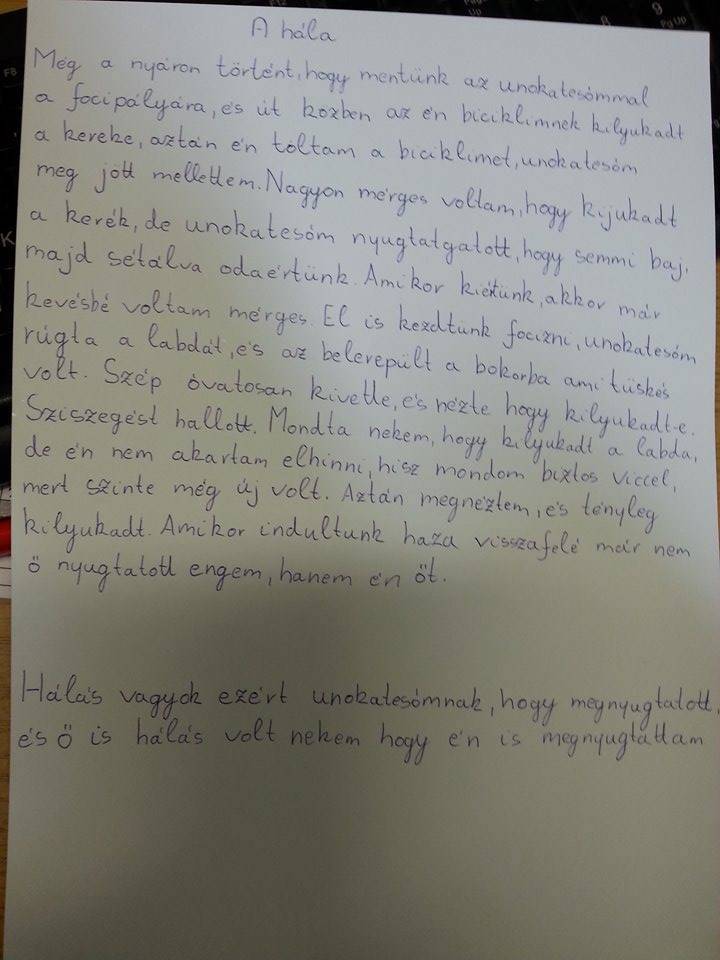 A hála
Még a nyáron történt, hogy mentünk az unokatesómmal
a focipályára, és út közben az én biciklimnek kilyukadt
a kereke, aztán én toltam a biciklimet, unokatesóm
meg jött mellettem. Nagyon mérges voltam, hogy kijukadt
a kerék, de unokatesóm nyugtatgatott, hogy semmi baj,
majd sétálva odaértünk. Amikor kiértünk, akkor már
kevésbé voltam mérges. El is kezdtünk focizni, unokatesóm
rúgta a labdát, és az belerepült a bokorba ami tüskés
volt. Szép óvatosan kivette, és nézte hogy kilyukadt-e.
Sziszegést hallott. Mondta nekem, hogy kilyukadt a labda,
de én nem akartam elhinni, hisz mondom biztos viccel,
mert szinte még új volt. Aztán megnéztem, és tényleg
kilyukadt. Amikor indultunk haza visszafelé már nem
ő nyugtatott engem, hanem én őt.
Hálás vagyok ezért unokatesómnak, hogy megnyugtatott,
és ő is hálás volt nekem hogy én is megnyugtattam
F8
8
9
Pg Up
K